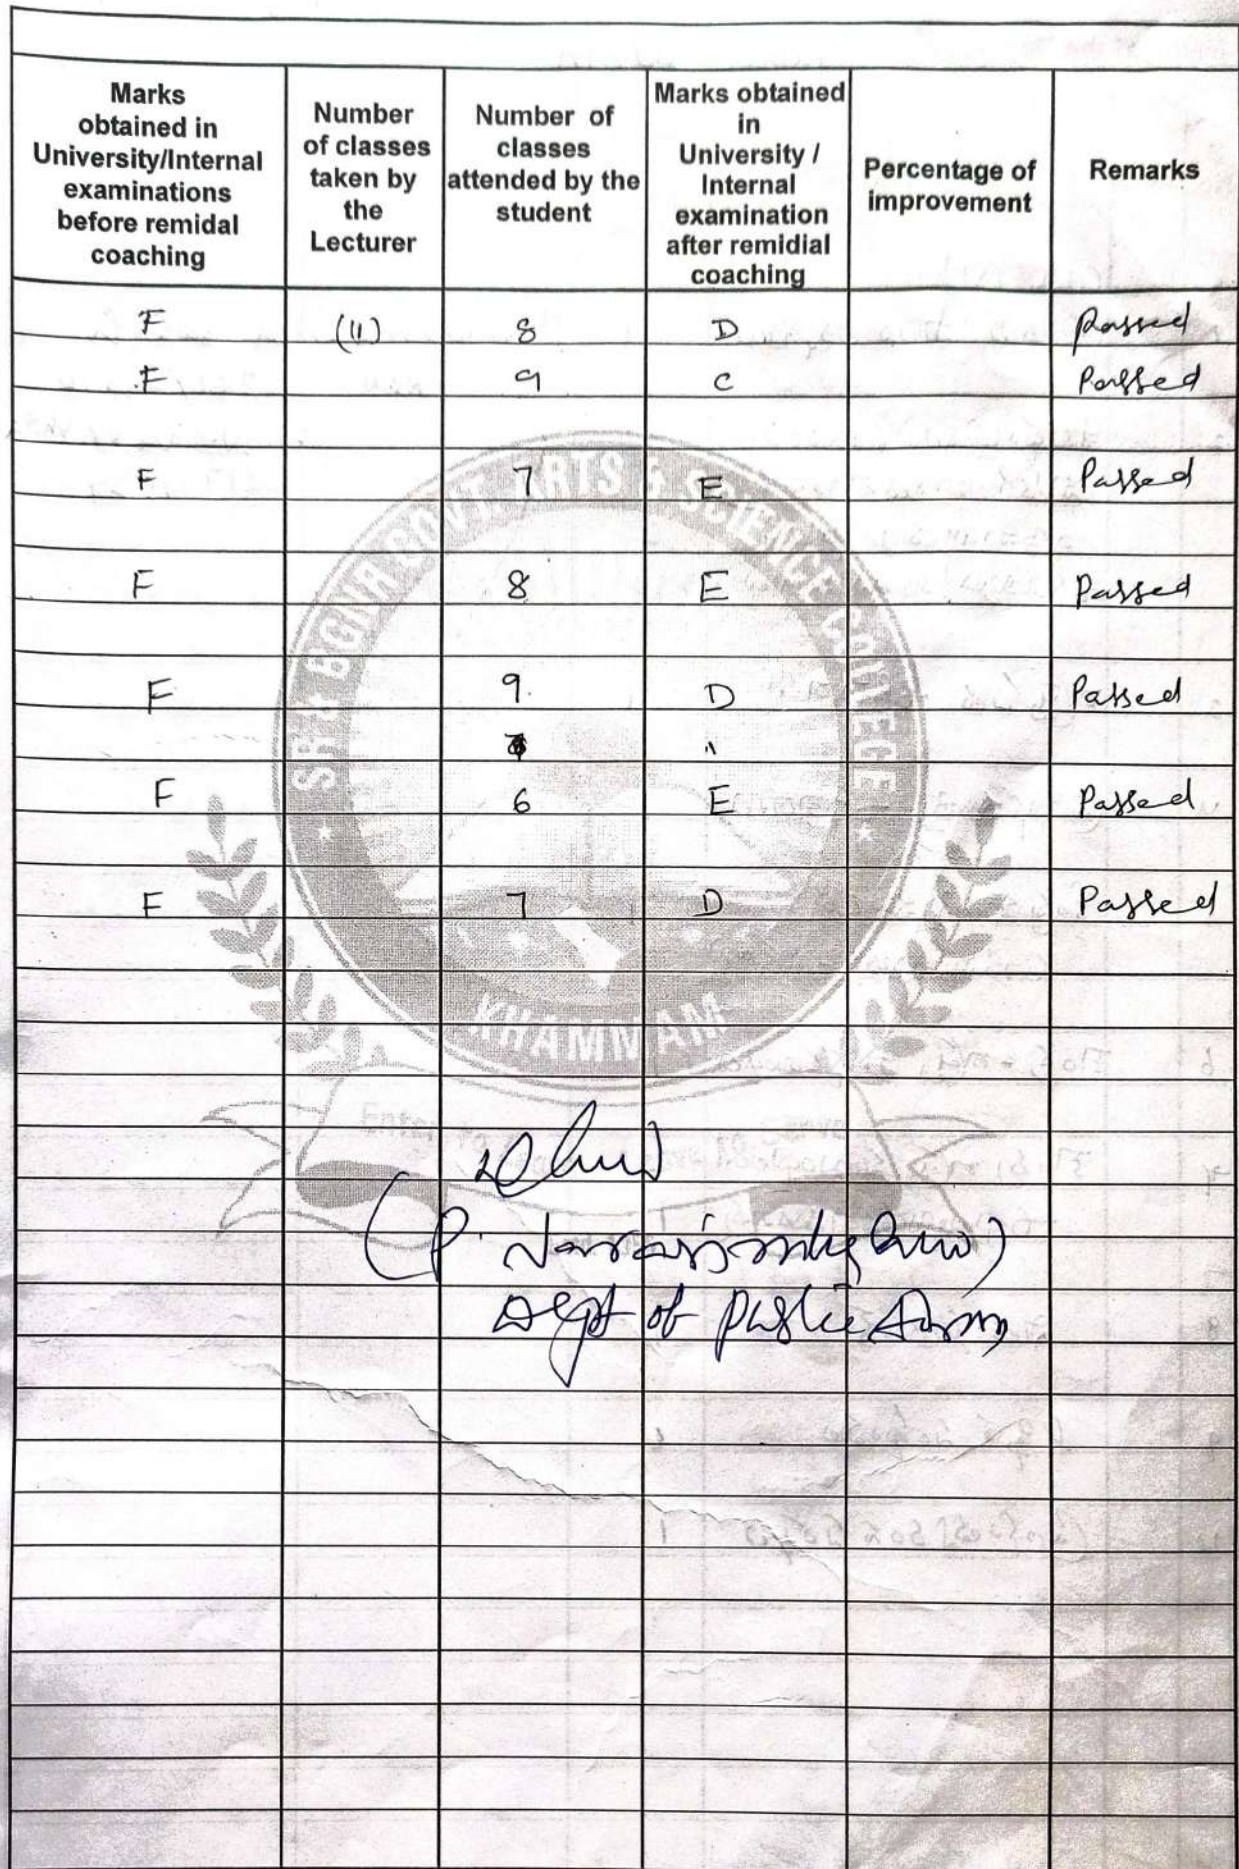 Marks obtained in University/Internal examinations before remidal coaching | Number of classes taken by the Lecturer | Number of classes attended by the student | Marks obtained in University / Internal examination after remidial coaching | Percentage of improvement | Remarks
F (11) 8 D Passed
F 9 C Passed
F 7 E Passed
F 8 E Passed
F 9 D Passed
"
F 6 E Passed
F 7 D Passed
SR & BGNR GOVT. ARTS & SCIENCE COLLEGE
KHAMMAM
(P.
Dept of Public